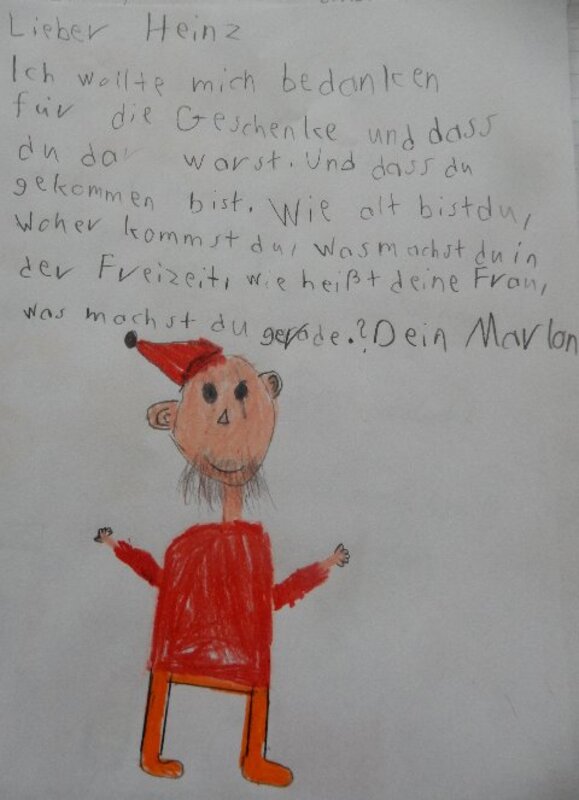 Lieber Heinz
Ich wollte mich bedanken
für die Geschenke und dass
du da warst. Und dass du
gekommen bist. Wie alt bist du,
woher kommst du, was machst du in
der Freizeit, wie heißt deine Frau,
was machst du gerade.? Dein Marlon